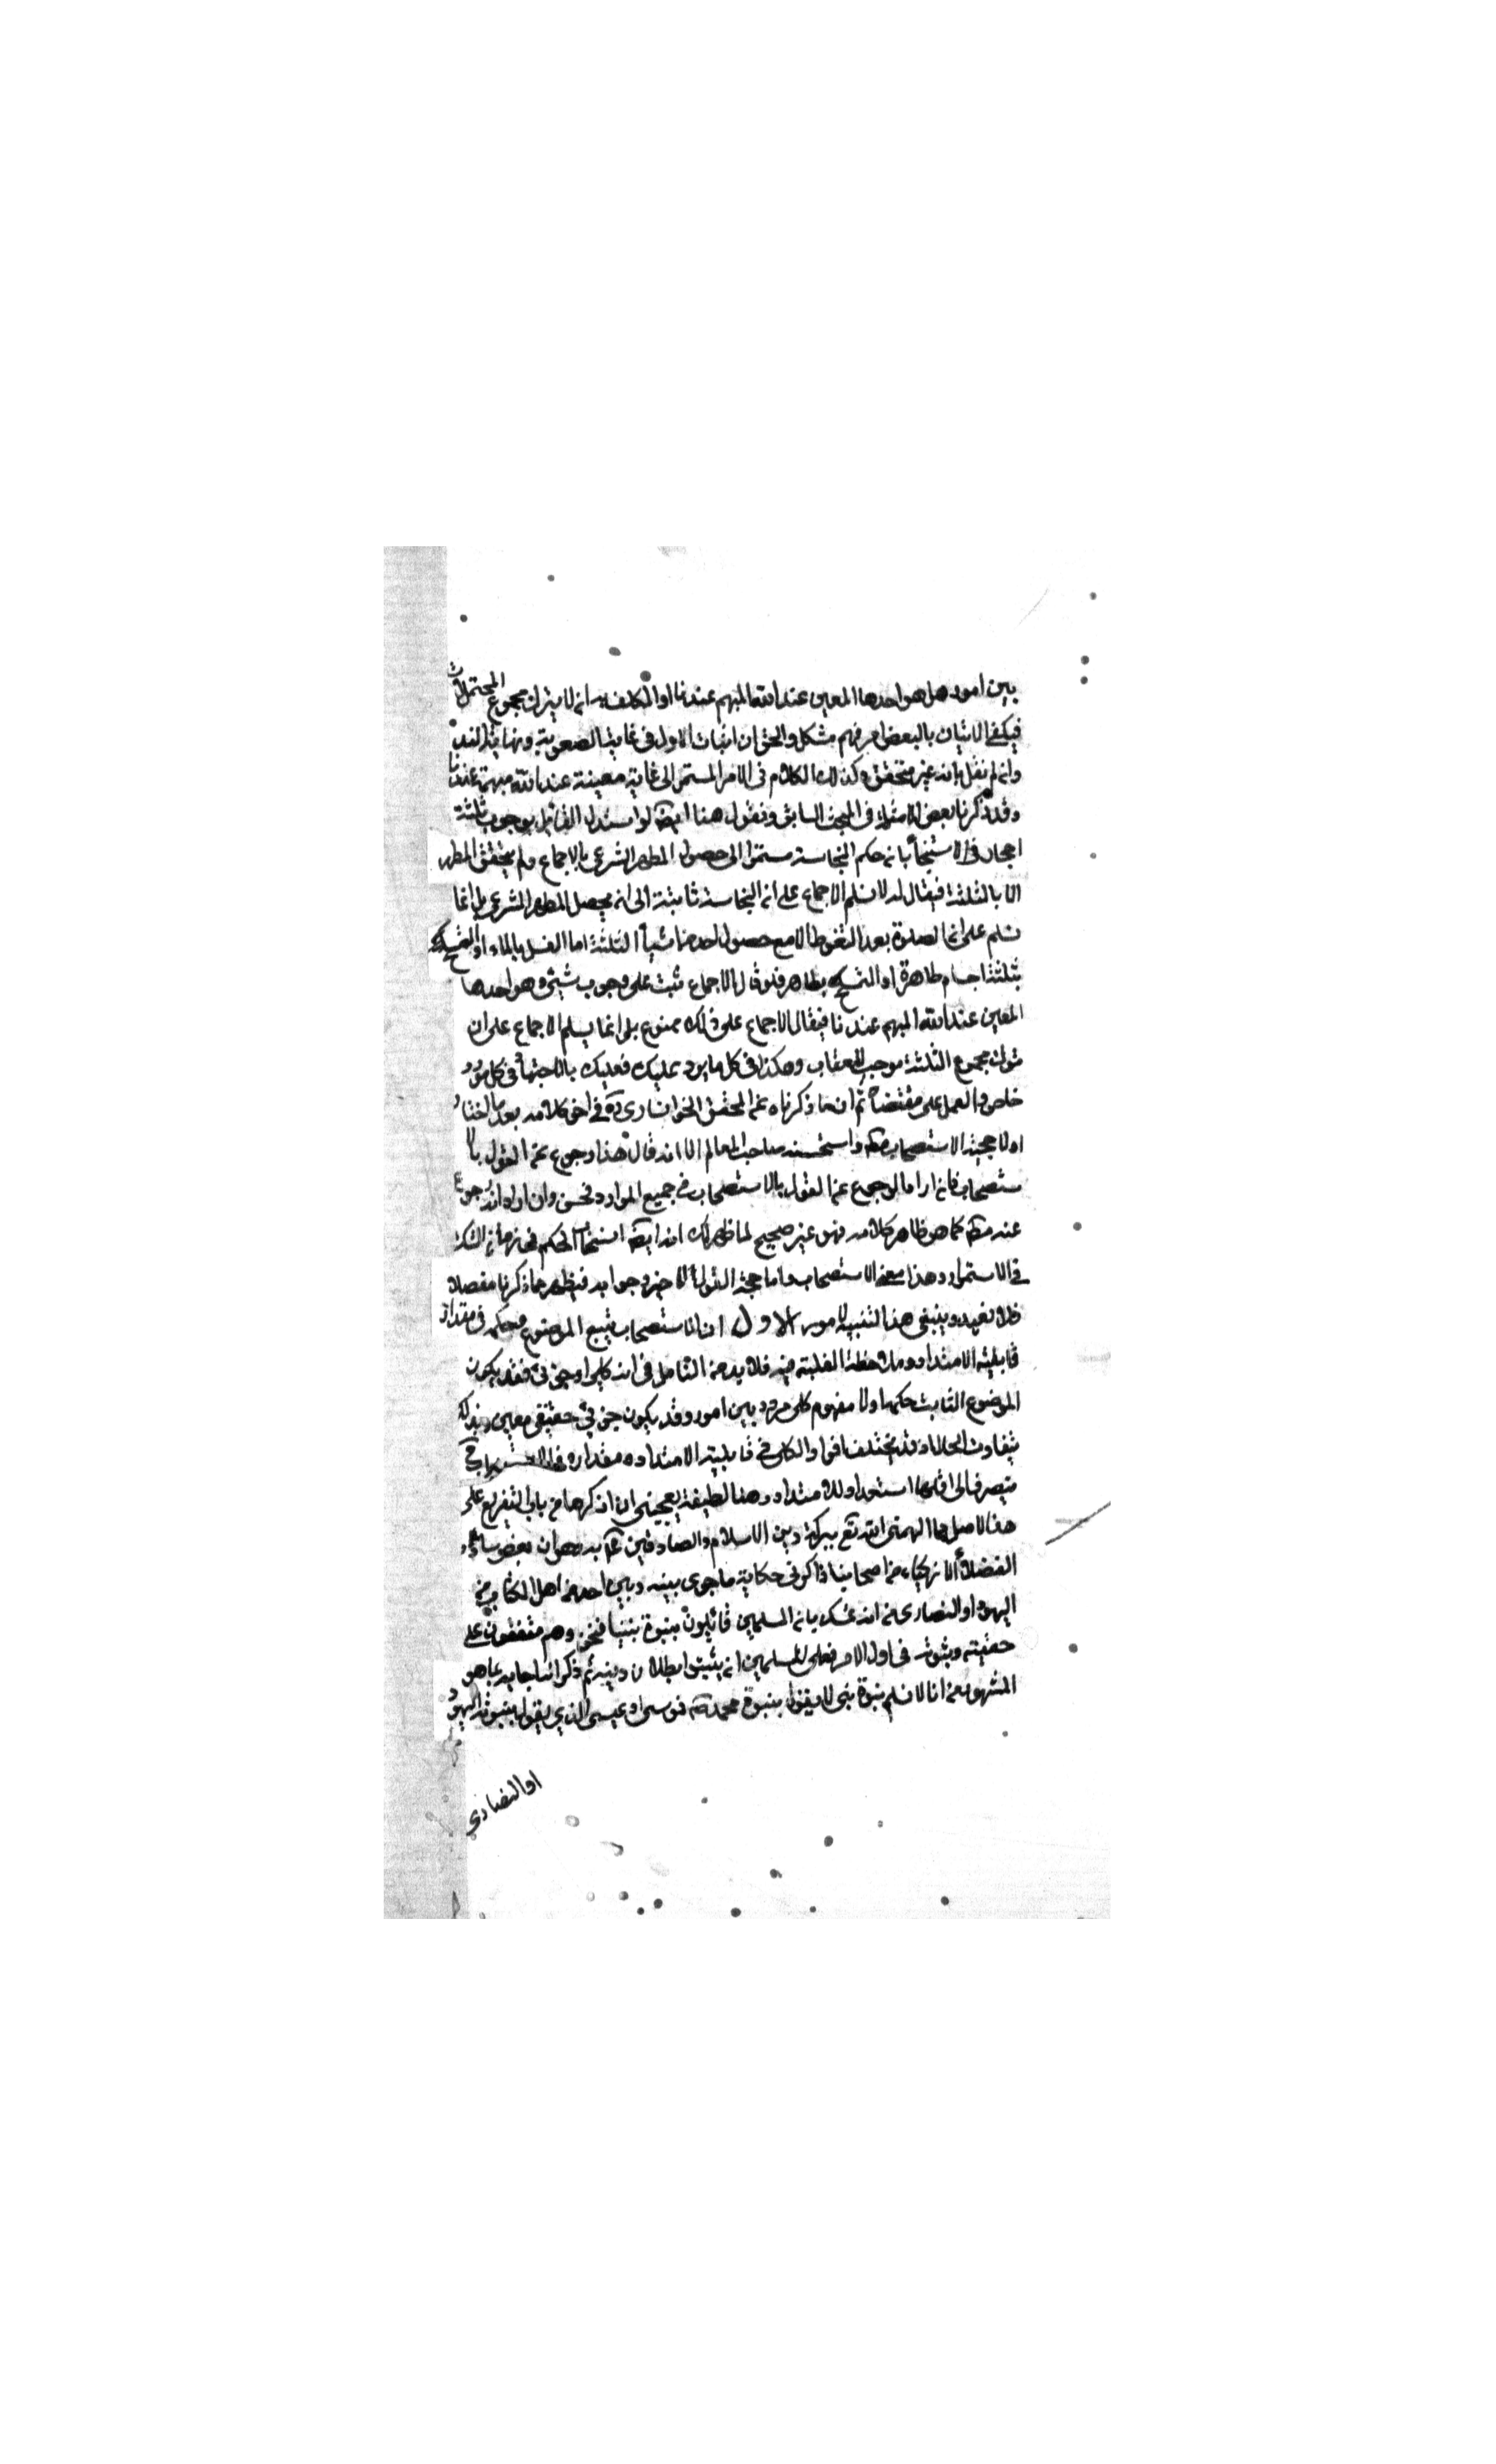 بين امور هل هو احدها المعين عند الله المبهم عندنا او المكلف به ان لا يترك مجموع المحتملات
فيكفي الاتيان بالبعض امر فهم مشكل والحق ان اثبات الاول في غاية الصعوبة ونهاية الندرة
وان لم نقل بانه غير متحقق وكذلك الكلام في الامر المستمر الى غاية معينة عند الله مبهمة عندنا
وقد ذكرنا بعض الامثلة في المبحث السابق ونقول هنا ايضا لو استدل القائل بوجوب ثلثة
احجار في الاستنجاء بان حكم النجاسة مستمر الى حصول المطهر الشرعي بالاجماع ولم يتحقق المطهر
الا بالثلثة فيقال له لا نسلم الاجماع على ان النجاسة ثابتة الى ان يحصل المطهر الشرعي بل انما
نسلم على ان الصلوة بعد التغوط الا مع حصول احد من الثلثة اما الغسل بالماء او التمسح
بثلثة اجسام طاهرة او التمسح بطاهر فلو قال الاجماع ثبت على وجوب شيئ وهو احدها
المعين عند الله المبهم عندنا فيقال الاجماع على ذلك ممنوع بل انما يسلم الاجماع على ان
ترك مجموع الثلثة موجب للعقاب وهكذا في كل ما يرد عليك فعليك بالاجتهاد في كل مورد
خاص والعمل على مقتضاه ثم ان ما ذكرناه عن المحقق الخوانساري ره في اخر كلامه بعد ما اختار
اولا حجية الاستصحاب مطلقا واستحسنه صاحب المعالم الا انه قال هذا رجوع عن القول بالا
ستصحاب فان اراد الرجوع عن القول بالاستصحاب في جميع الموارد فحسن وان اراد انه رجوع
عنه مطلقا كما هو ظاهر كلامه فهو غير صحيح لما ظهر لك انه ايضا استصحاب الحكم في زمان الشك
في الاستمرار وهذا معنى الاستصحاب واما حجة القول الاخير وجوابه فيظهر مما ذكرنا مفصلا
فلا نعيد وينبغي هنا التنبيه لامور الاول ان الاستصحاب يتبع الموضوع وحكمه في مقدار
قابلية الامتداد وملاحظة الغلبة فيه فلا بد من التامل في انه كلي او جزئي فقد يكون
الموضوع الثابت حكمه اولا مفهوم كلي مردد بين امور وقد يكون جزئي حقيقي معين وبذلك
يتفاوت الحال اذ قد يختلف افراد الكلي في قابلية الامتداد ومقداره فالاستصحاب ح
ينصرف الى اقلها استعدادا للامتداد وهنا لطيفة يعجبني ان اذكرها من باب التفريع على
هذا الاصل مما الهمني الله تعالى ببركة دين الاسلام والصادقين به وهو ان بعض سادة
الفضلاء الازكياء من اصحابنا ذاكرني حكاية ما جرى بينه وبين احد من اهل الكتاب من
اليهود او النصارى من انه تمسك بان المسلمين قائلون بنبوة نبينا فنحن وهم متفقون على
حقيته ونبوته في اول الامر فعلى المسلمين ان يثبتوا بطلان دينه ثم ذكر انه اجابه بما هو
المشهور من انا لا نسلم نبوة نبي لا يقول بنبوة محمد ص فموسى او عيسى الذي يقول بنبوته اليهود
او النصارى